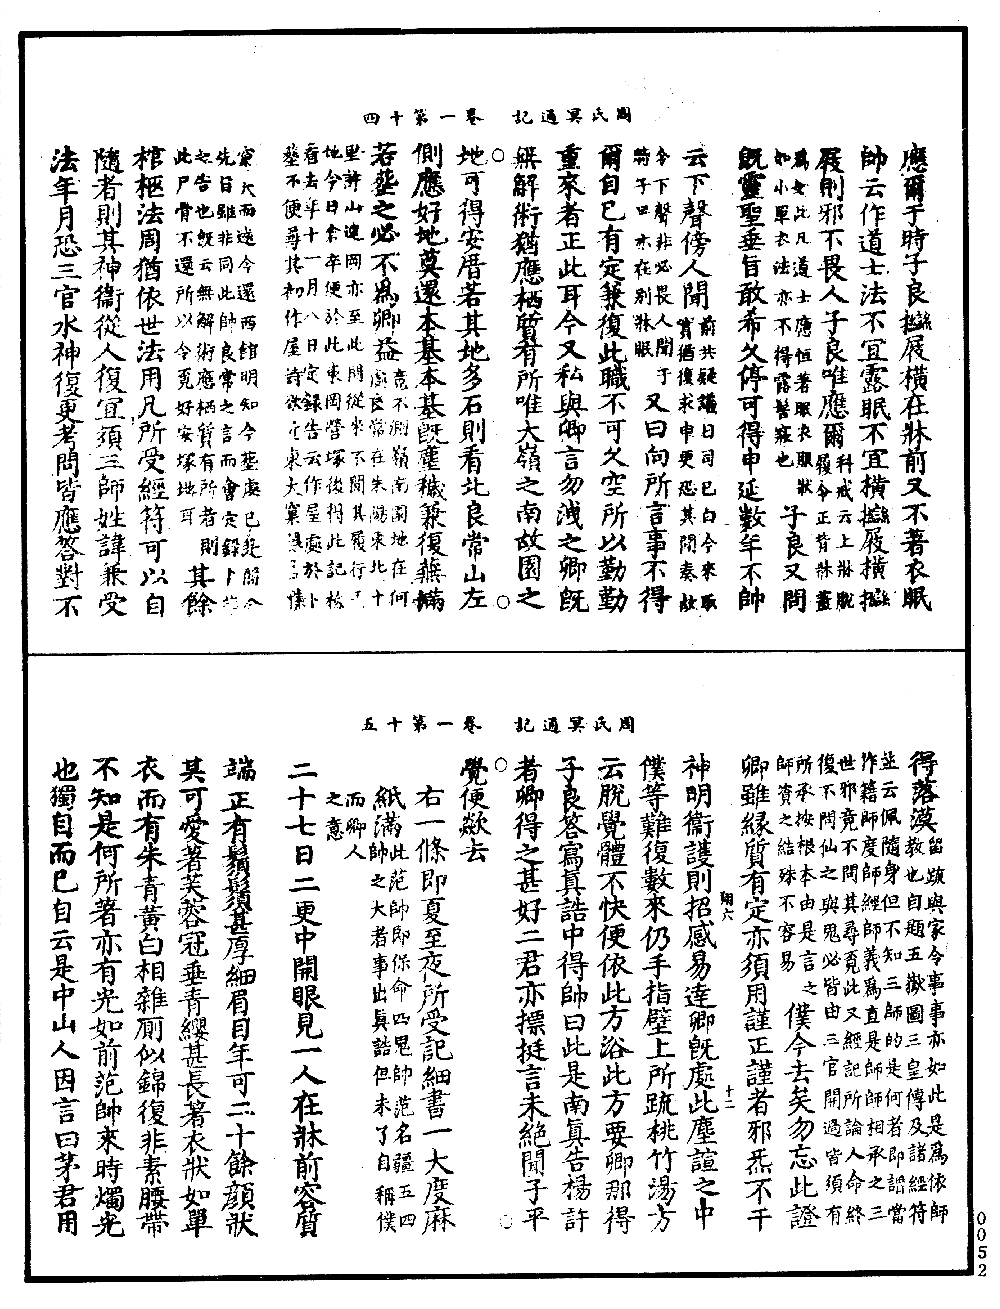 周氏冥通記　卷一第十四
應爾于時子良𢹂屐橫在牀前又不著衣眠
帥云作道士法不宜露眠不宜橫𢹂屐橫𢹂
屐則邪不畏人子良唯應爾科戒云上牀脫
屐令正背牀蓋
爲如此凡道士應恒著眠衣眠牀
如小單衣法亦不得露髻寢也子良又問
旣靈聖垂旨敢希久停可得申延數年不帥
云下聲傍人聞前共疑議日司已白今來取
實猶復求申更恐其聞奏故
令下聲非必畏人聞于
時子平亦在别牀眠又曰向所言事不得
爾自已有定兼復此職不可久空所以勤勤
重來者正此耳今又私與卿言勿洩之卿旣
無解術猶應栖質有所唯大嶺之南故園之
地可得安厝若其地多石則看北良常山左
側應好地莫還本基本基旣塵穢兼復蕪滿
若葬之必不爲卿益竟不測嶺南園地在何
處良常在朱陽東北十
里許山連岡亦至此間從來不聞其履行
地今日奄卒便於此東岡營塚後得此記
看去年十一月八日定錄告云作屋處於
墓不便尋其初作屋許
寬大而遠今還西館明知今葬處已是閒
先日雖非同此帥良常之言而會定錄卜
之告也旣云無解術應栖質有所者則
此尸骨不還所以令覓好安塚地耳其餘
棺柩法周猶依世法用凡所受經符可以自
隨者則其神衞從人復宜須三師姓諱兼受
法年月恐三官水神復更考問皆應答對不
周氏冥通記　卷一第十五
得落漠留䟽與家令事事亦如此是爲依師
教也自題五嶽圖三皇傳及諸經符
並云佩隨身但不知三師的是何者即謂當
作籍師度師經師義爲直是師師相承之三
世邪竟不問其尋覓此又經記所論人命終
復不問仙之與鬼必皆由三官開過皆須有
所承按根本由是言之
師資之結殊不容易僕今去矣勿忘此證
卿雖緣質有定亦須用謹正謹者邪炁不干
神明衞護則招感易達卿旣處此塵諠之中
翔六
十二
僕等難復數來仍手指壁上所䟽桃竹湯方
云脫覺體不快便依此方浴此方要卿那得
子良答寫真誥中得帥曰此是南真告楊許
者卿得之甚好二君亦摽挺言未絕聞子平
覺便歘去
右一條即夏至夜所受記細書一大度麻
紙滿此范帥即保命四鬼帥范名疆五四
帥之大者事出真誥但未了自稱僕
而卿人
之意
二十七日二更中開眼見一人在牀前容質
端正有鬚鬢甚厚細眉目年可二十餘顏狀
甚可愛著芙蓉冠垂青纓甚長著衣狀如單
衣而有朱青黃白相雜厠似錦復非素腰帶
不知是何所著亦有光如前范帥來時燭光
也獨自而已自云是中山人因言曰茅君用
0052